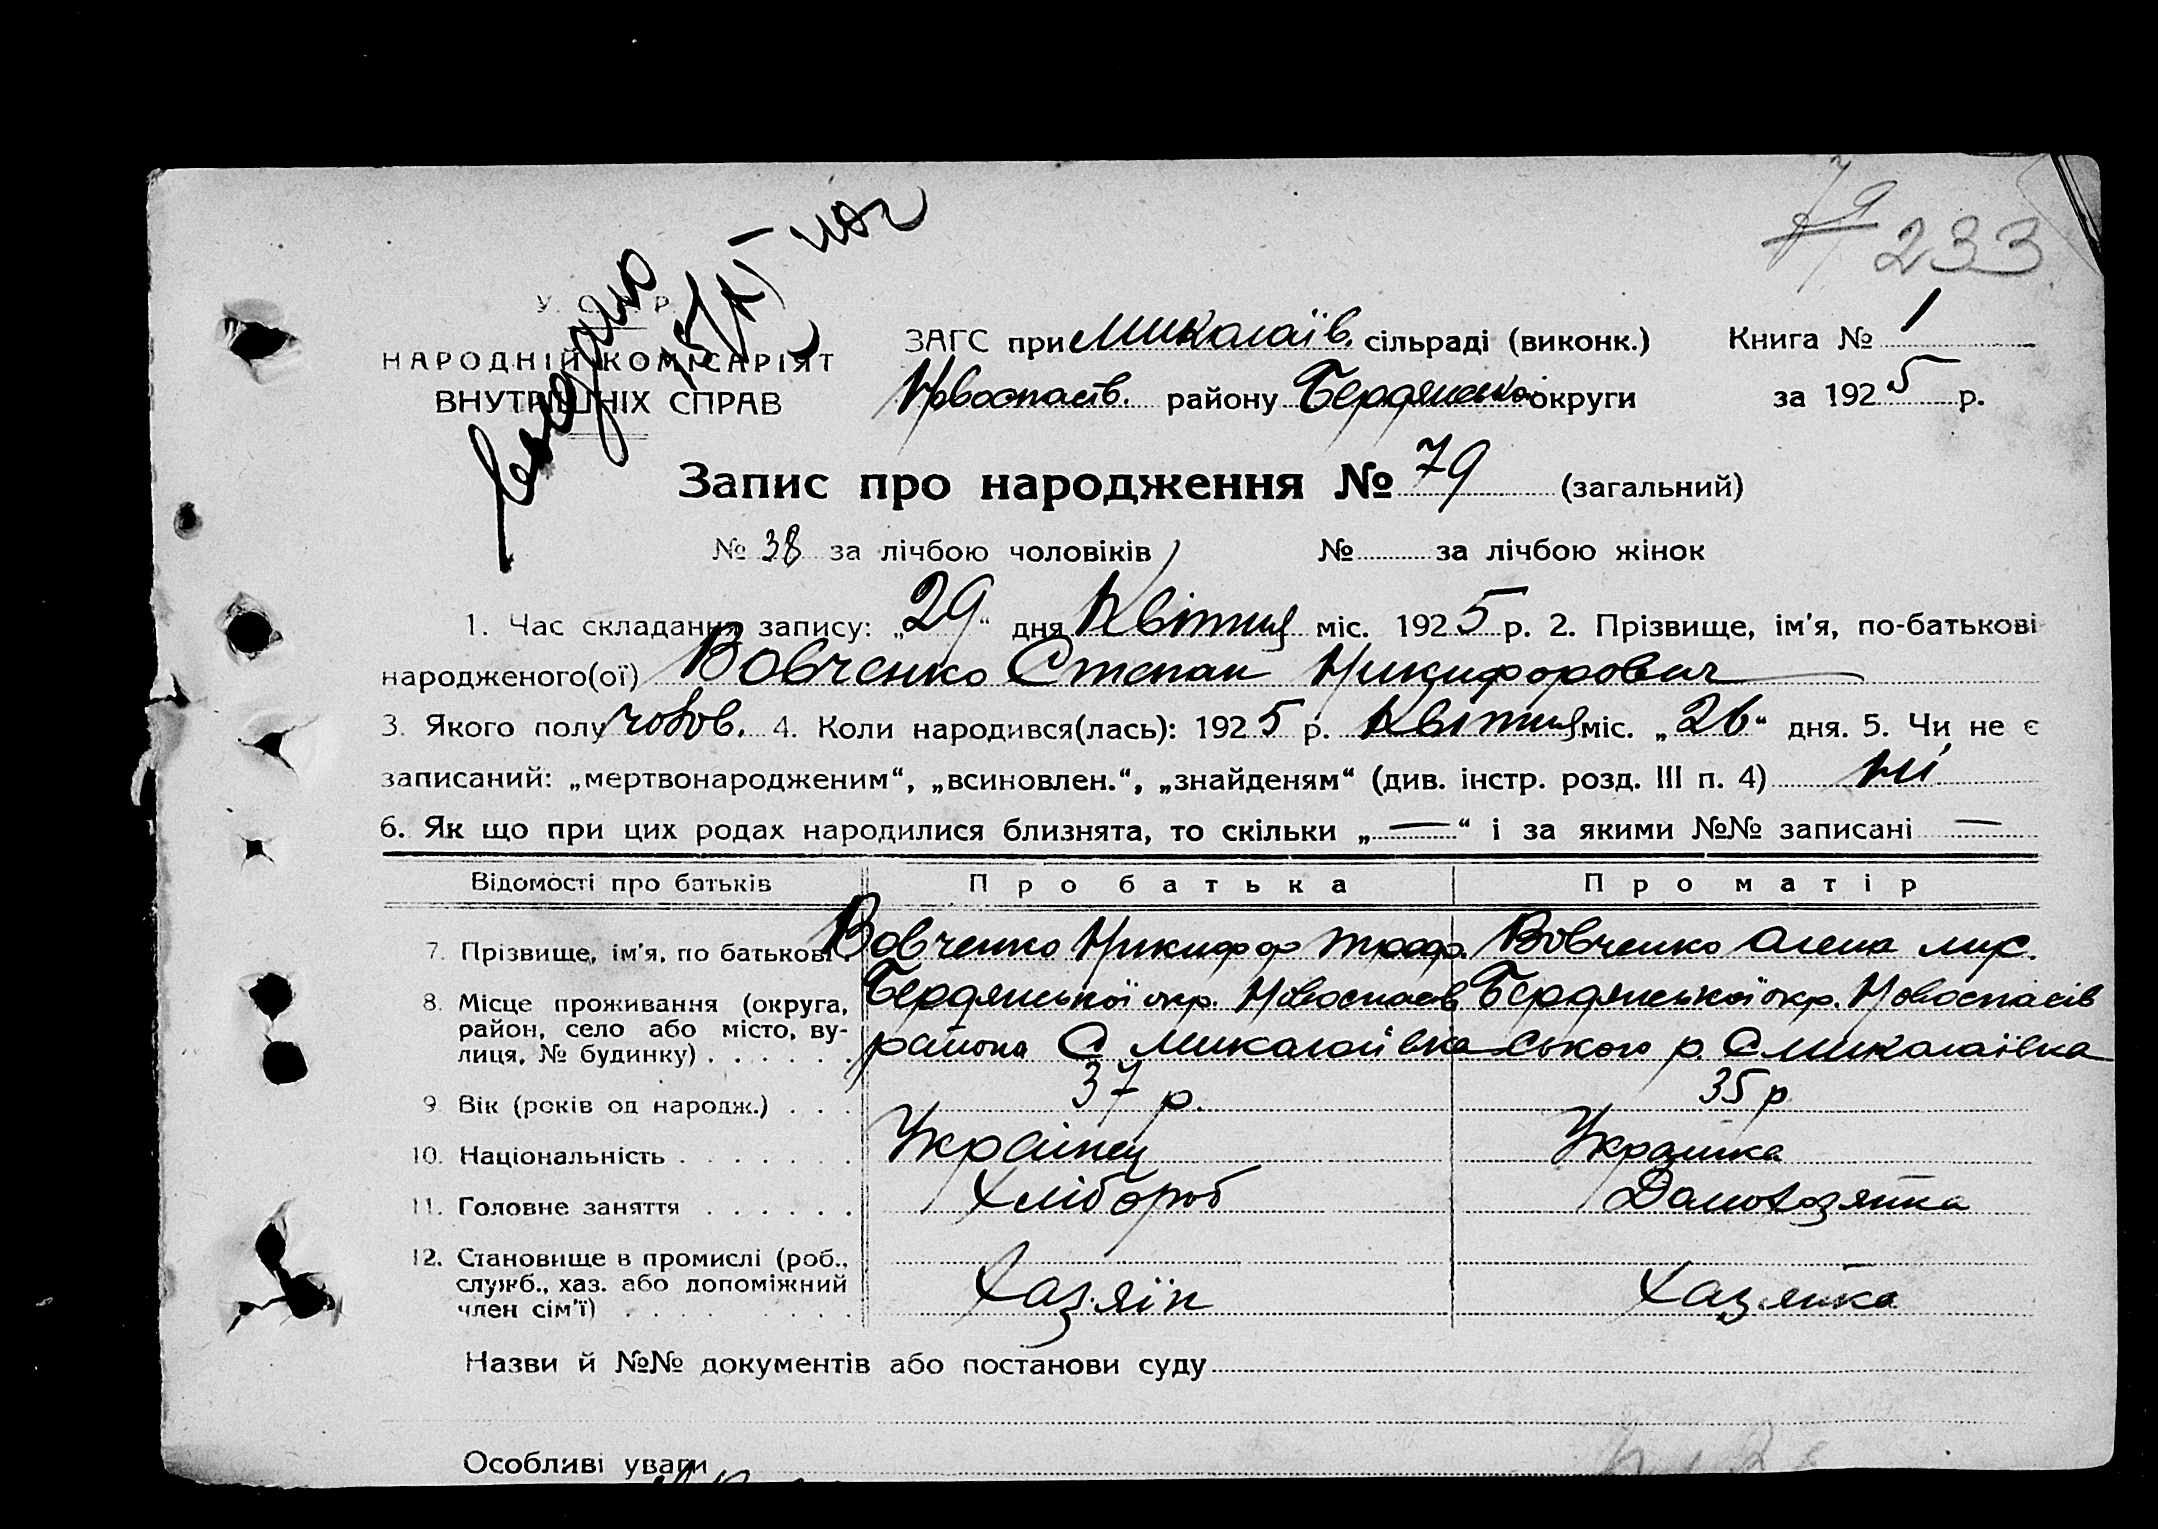 79 233
У. С. Р. Р.
НАРОДНІЙ КОМІСАРІЯТ
ВНУТРІШНІХ СПРАВ
ЗАГС при Миколаїв. сільраді (виконк.) Книга № 1
Новоспасів. району Бердянської округи за 1925 р.
Запис про народження № 79 (загальний)
№ 38 за лічбою чоловіків № за лічбою жінок
1. Час складання запису: „29“ дня Квітня міс. 1925 р. 2. Прізвище, ім'я, по-батькові
народженого(ої) Вовченко Степан Никифорович
3. Якого полу чолов. 4. Коли народився(лась): 1925 р. Квітня міс. „26“ дня. 5. Чи не є
записаний: „мертвонародженим“, „всиновлен.“, „знайденям“ (див. інстр. розд. III п. 4) ні
6. Як що при цих родах народилися близнята, то скільки „—“ і за якими №№ записані —
Відомості про батьків Про батька Про матір
7. Прізвище, ім'я, по батькові. Вовченко Никифор Вовченко Олена
8. Місце проживання (округа, Бердянської окр. Новоспасів Бердянської окр. Новоспасів
район, село або місто, ву-
лиця, № будинку) . . . . . . района С Миколаївка ського р. С Миколаївка
9. Вік (років од народж.) . . . 37 р. 35 р
10. Національність . . . . . . . Українец Українка
11. Головне заняття . . . . . . Хлібороб Домохозяйка
12. Становище в промислі (роб.,
служб., хаз. або допоміжний
член сім'ї) . . . . . . . . Хазяїн Хазяйка
Назви й №№ документів або постанови суду
Особливі уваги